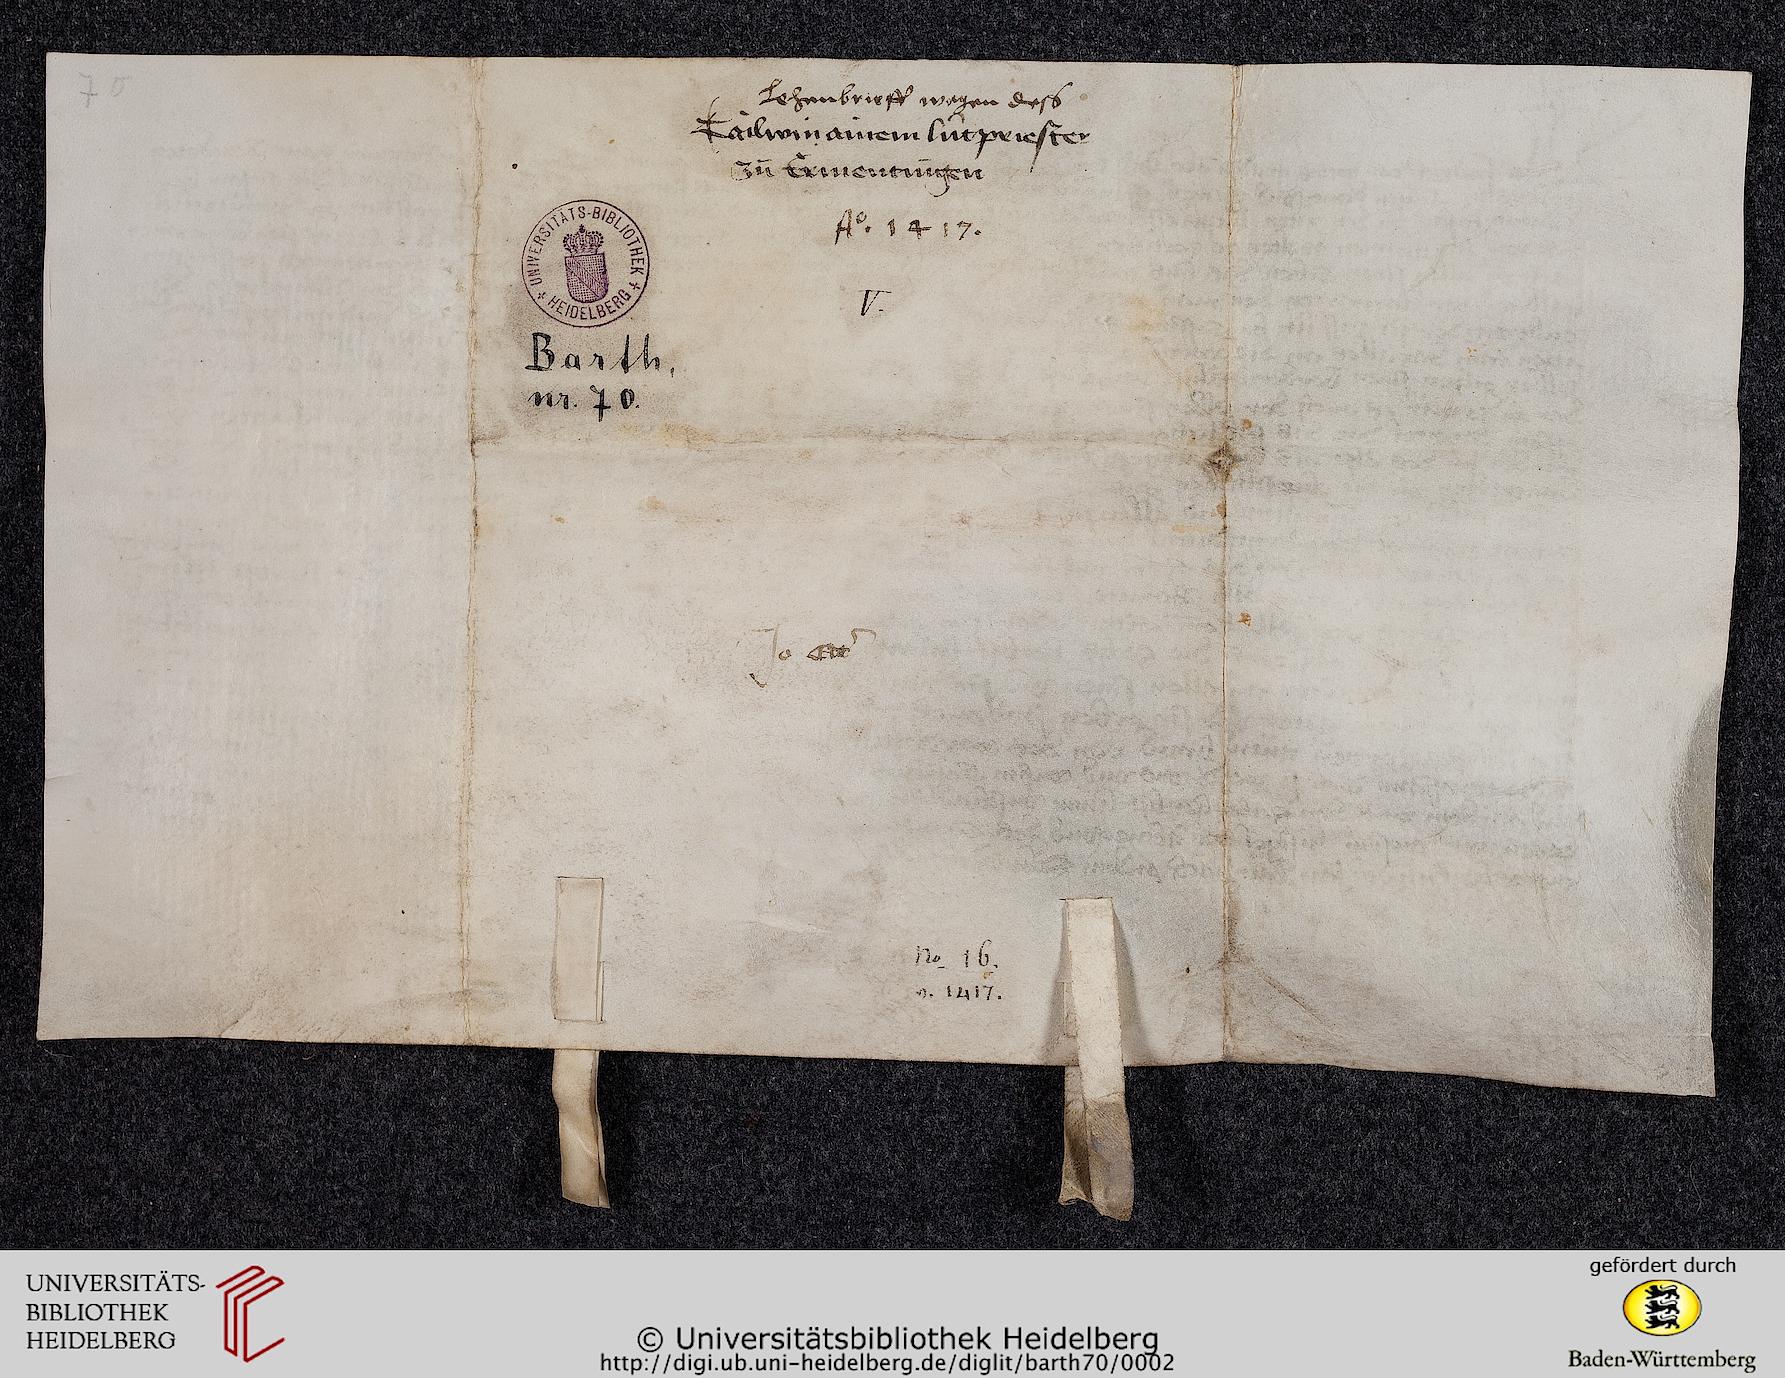 70
Lehenbrieff wegen dess
ainem lutpriester
zů Ermentingen
Aº. 1417.
V.
UNIVERSITÄTS-BIBLIOTHEK
HEIDELBERG
Barth.
nr. 70.
Jo
No. 16.
a. 1417.
UNIVERSITÄTS-
BIBLIOTHEK
HEIDELBERG
© Universitätsbibliothek Heidelberg
http://digi.ub.uni-heidelberg.de/diglit/barth70/0002
gefördert durch
Baden-Württemberg